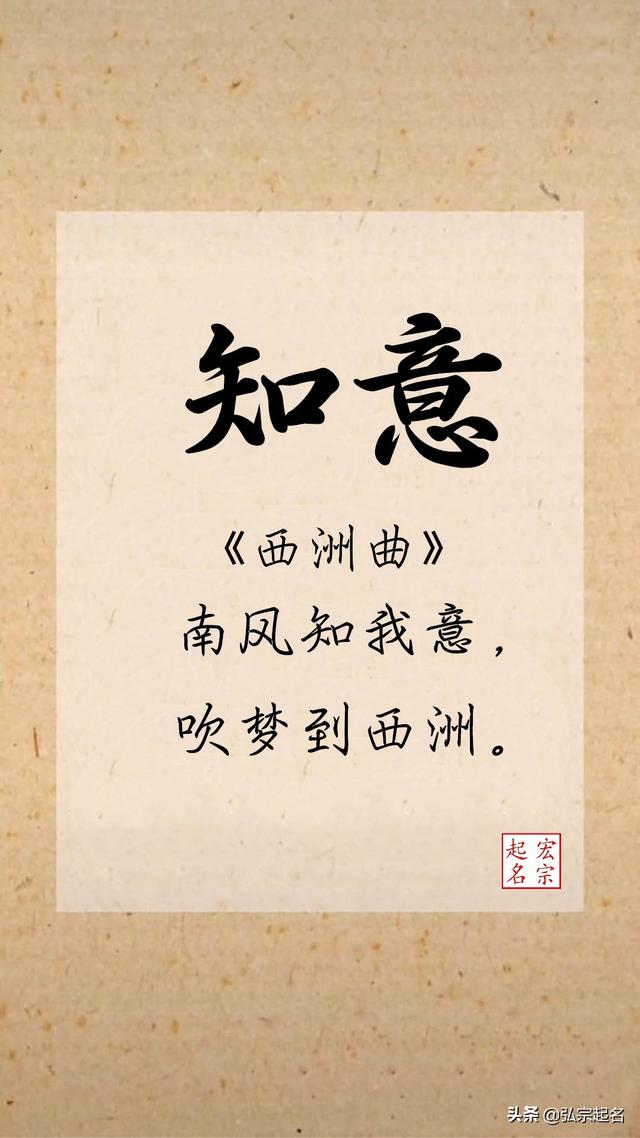 知意
《西洲曲》
南风知我意，
吹梦到西洲。
宏宗
起名
头条 @弘宗起名